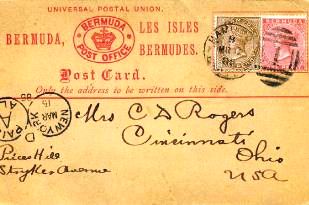 UNIVERSAL POSTAL UNION.
BERMUDA,
BERMUDA
POST OFFICE
LES ISLES
BERMUDES.
Post Card.
Only the address to be written on this side.
Mrs C D Rogers
Cincinnati
Ohio
USA
Price Hill
Stryker Avenue
NEW YORK
MAR
15
D
PAID
A
BERMUDA